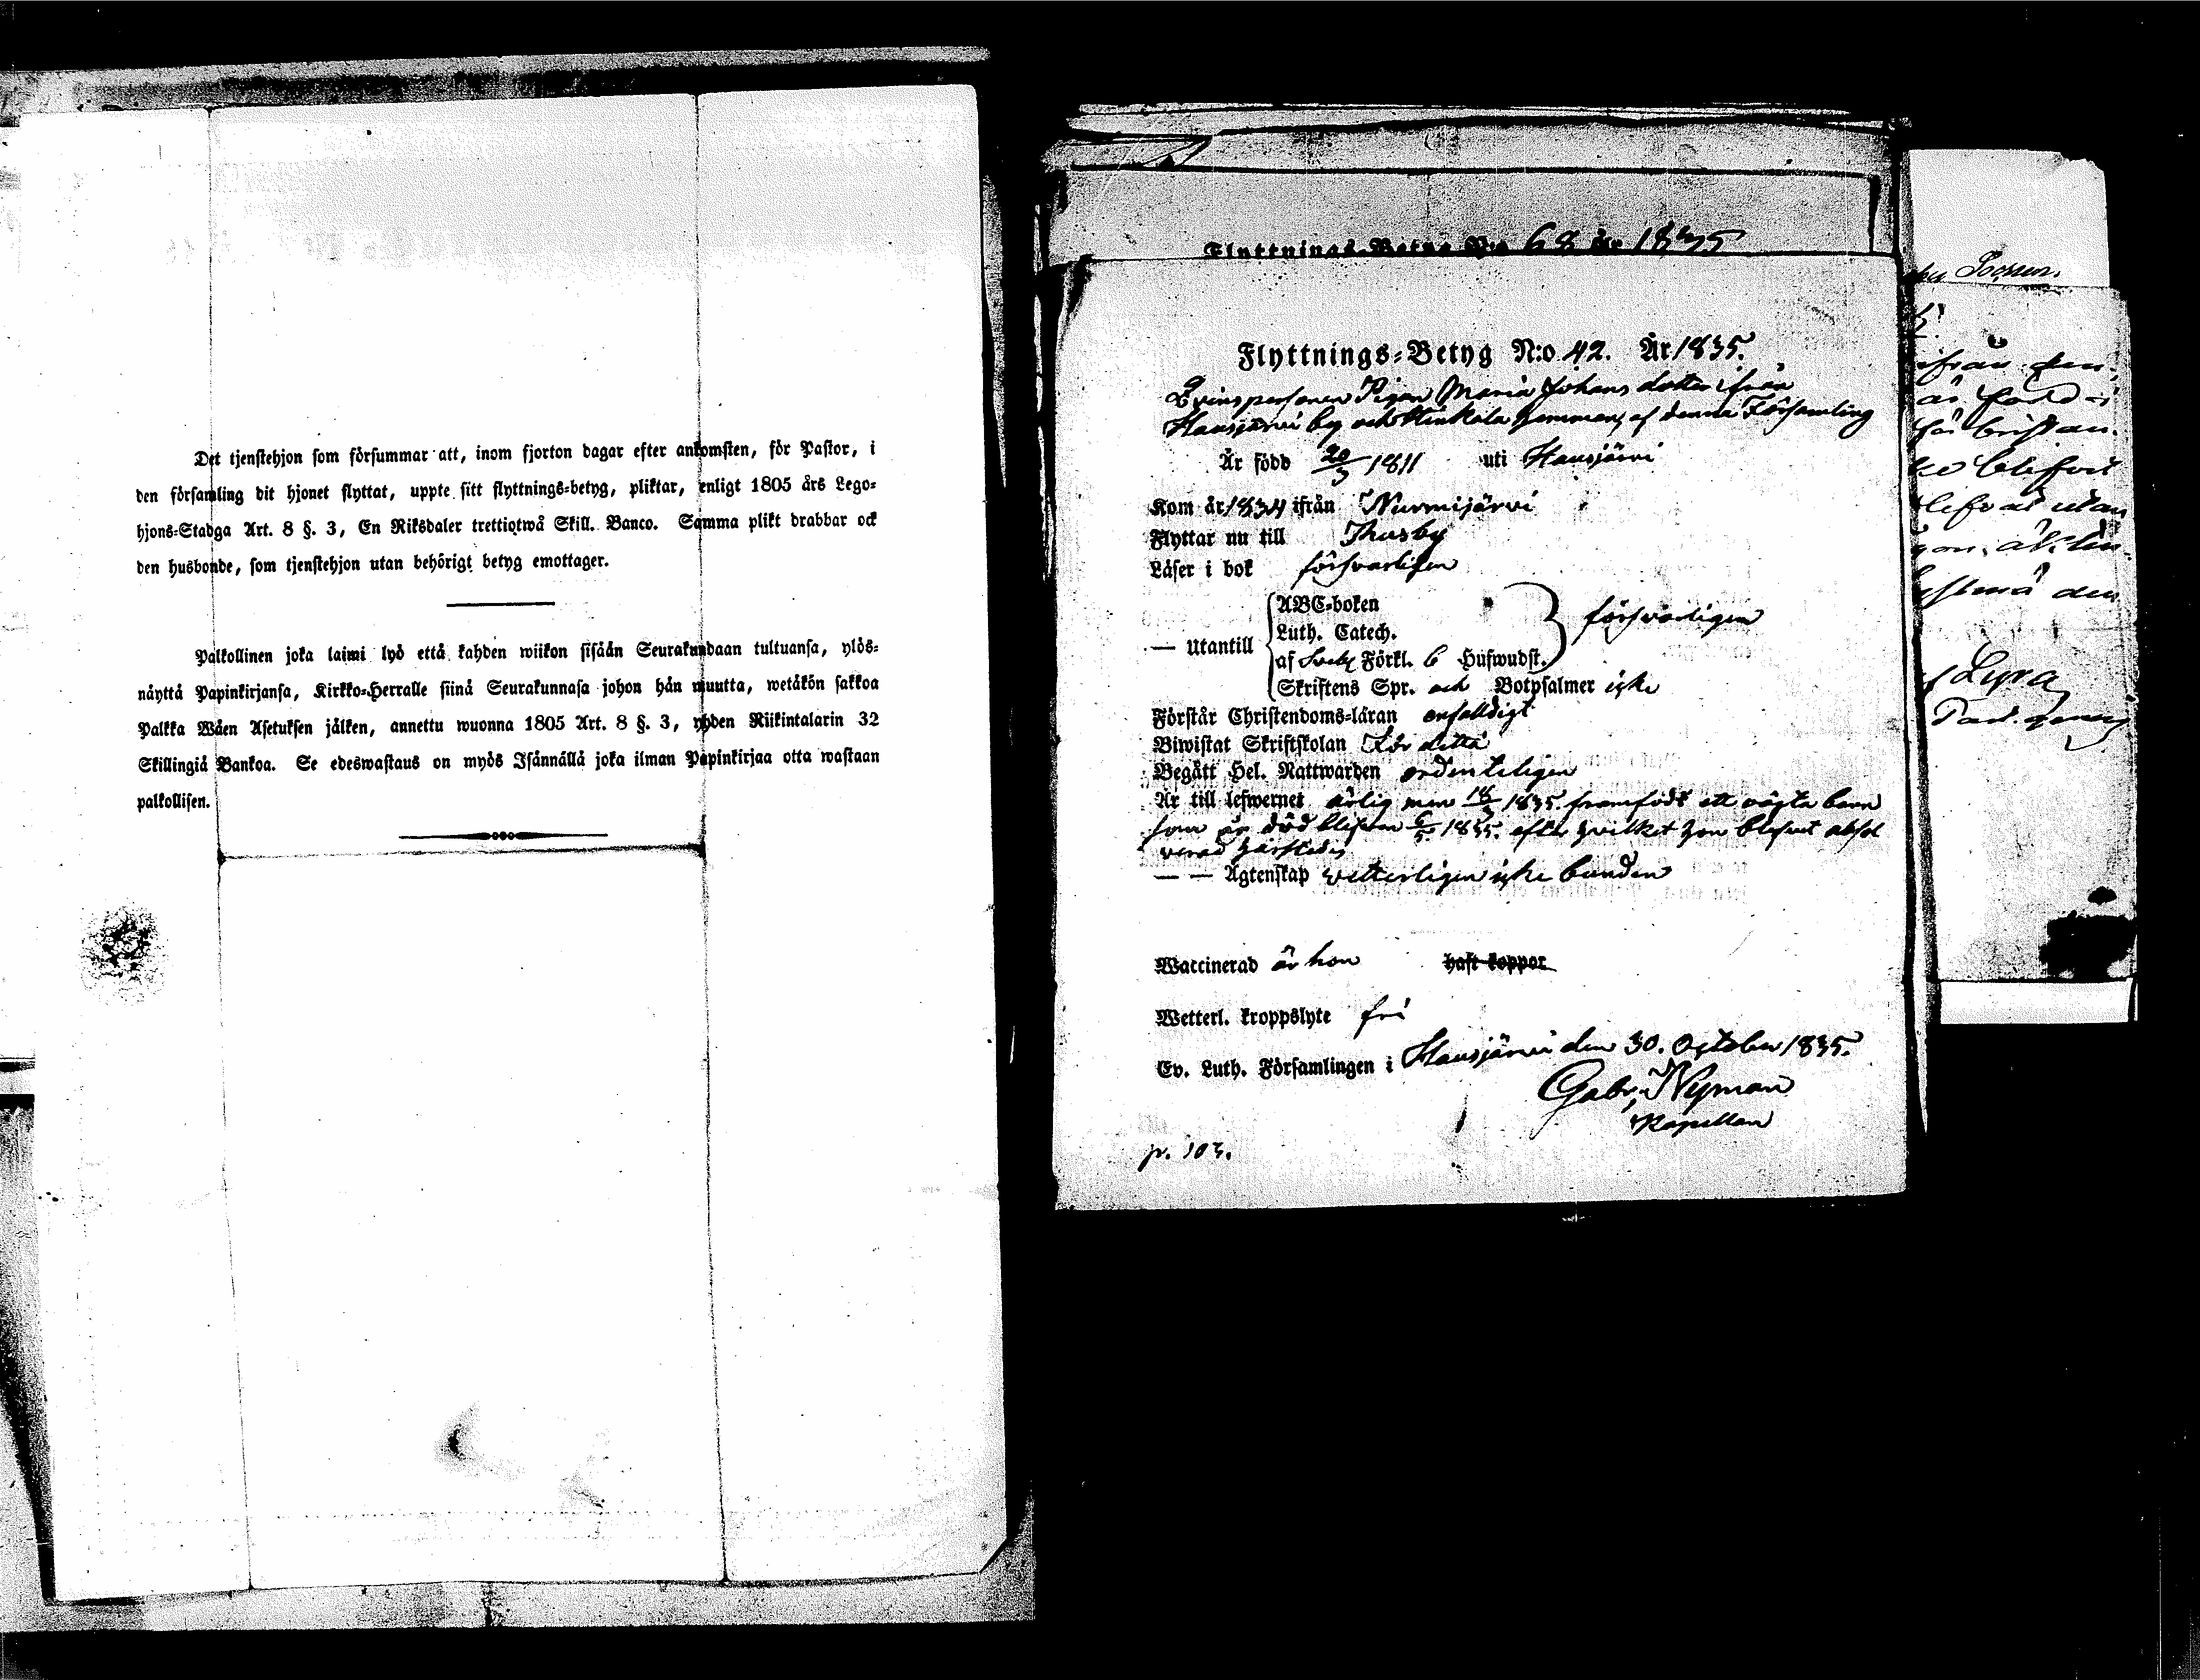 Det tjenstehjon som försummar att, inom fjorton dagar efter ankomsten, för Pastor, i
den församling dit hjonet flyttat, uppte sitt flyttnings-betyg, pliktar, enligt 1805 års Lego-
hjons-Stadga Art. 8 §. 3, En Riksdaler trettiotwå Skill. Banco. Samma plikt drabbar ock
den husbonde, som tjenstehjon utan behörigt betyg emottager.
Palkollinen joka laimi lyö että kahden wiikon sisään Seurakundaan tultuansa, ylös-
näyttä Papinkirjansa, Kirkko-Herralle siinä Seurakunnasa johon hän muutta, wetäkön sakkoa
Palkka Wäen Asetuksen jälken, annettu wuonna 1805 Art. 8 §. 3, yhden Riikintalarin 32
Skillingiä Bankoa. Se edeswastaus on myös Isännällä joka ilman Papinkirjaa otta wastaan
palkollisen.
Flyttnings-Betyg N:o 68 År 1835
Flyttnings-Betyg N:o 42. År 1835.
Qvinspersonen Pigan Maria Johans dotter ifrån
Hausjärvi by och Hinkala hemman, af denna Församling
Är född 20/3 1811 uti Hausjärvi
Kom år 1834 ifrån Nurmijärvi
Flyttar nu till Thusby
Läser i bok försvarligen
— Utantill
ABC-boken
Luth. Catech.
af Sveb. Förkl. 6 Hufwudst.
försvarligen
Skriftens Spr. och Botpsalmer icke
Förstår Christendoms-läran enfalldigt
Biwistat Skriftskolan för detta
Begått Hel. Nattwarden ordenteligen
Är till lefwernet ärlig men 18/3 1835. framfödt ett oägta barn
som är död blifven 6/5 1835. efter hvilket hon blifvit absol
verad härstädes
— — Ägtenskap vetterligen icke bunden
Waccinerad är hon haft koppor
Wetterl. kroppslyte fri
Ev. Luth. Församlingen i Hausjärvi den 30. October 1835.
Gabr. Nyman
Kapellan
p. 103.
ifrån
född i
blifvit
utan
den
Lyra